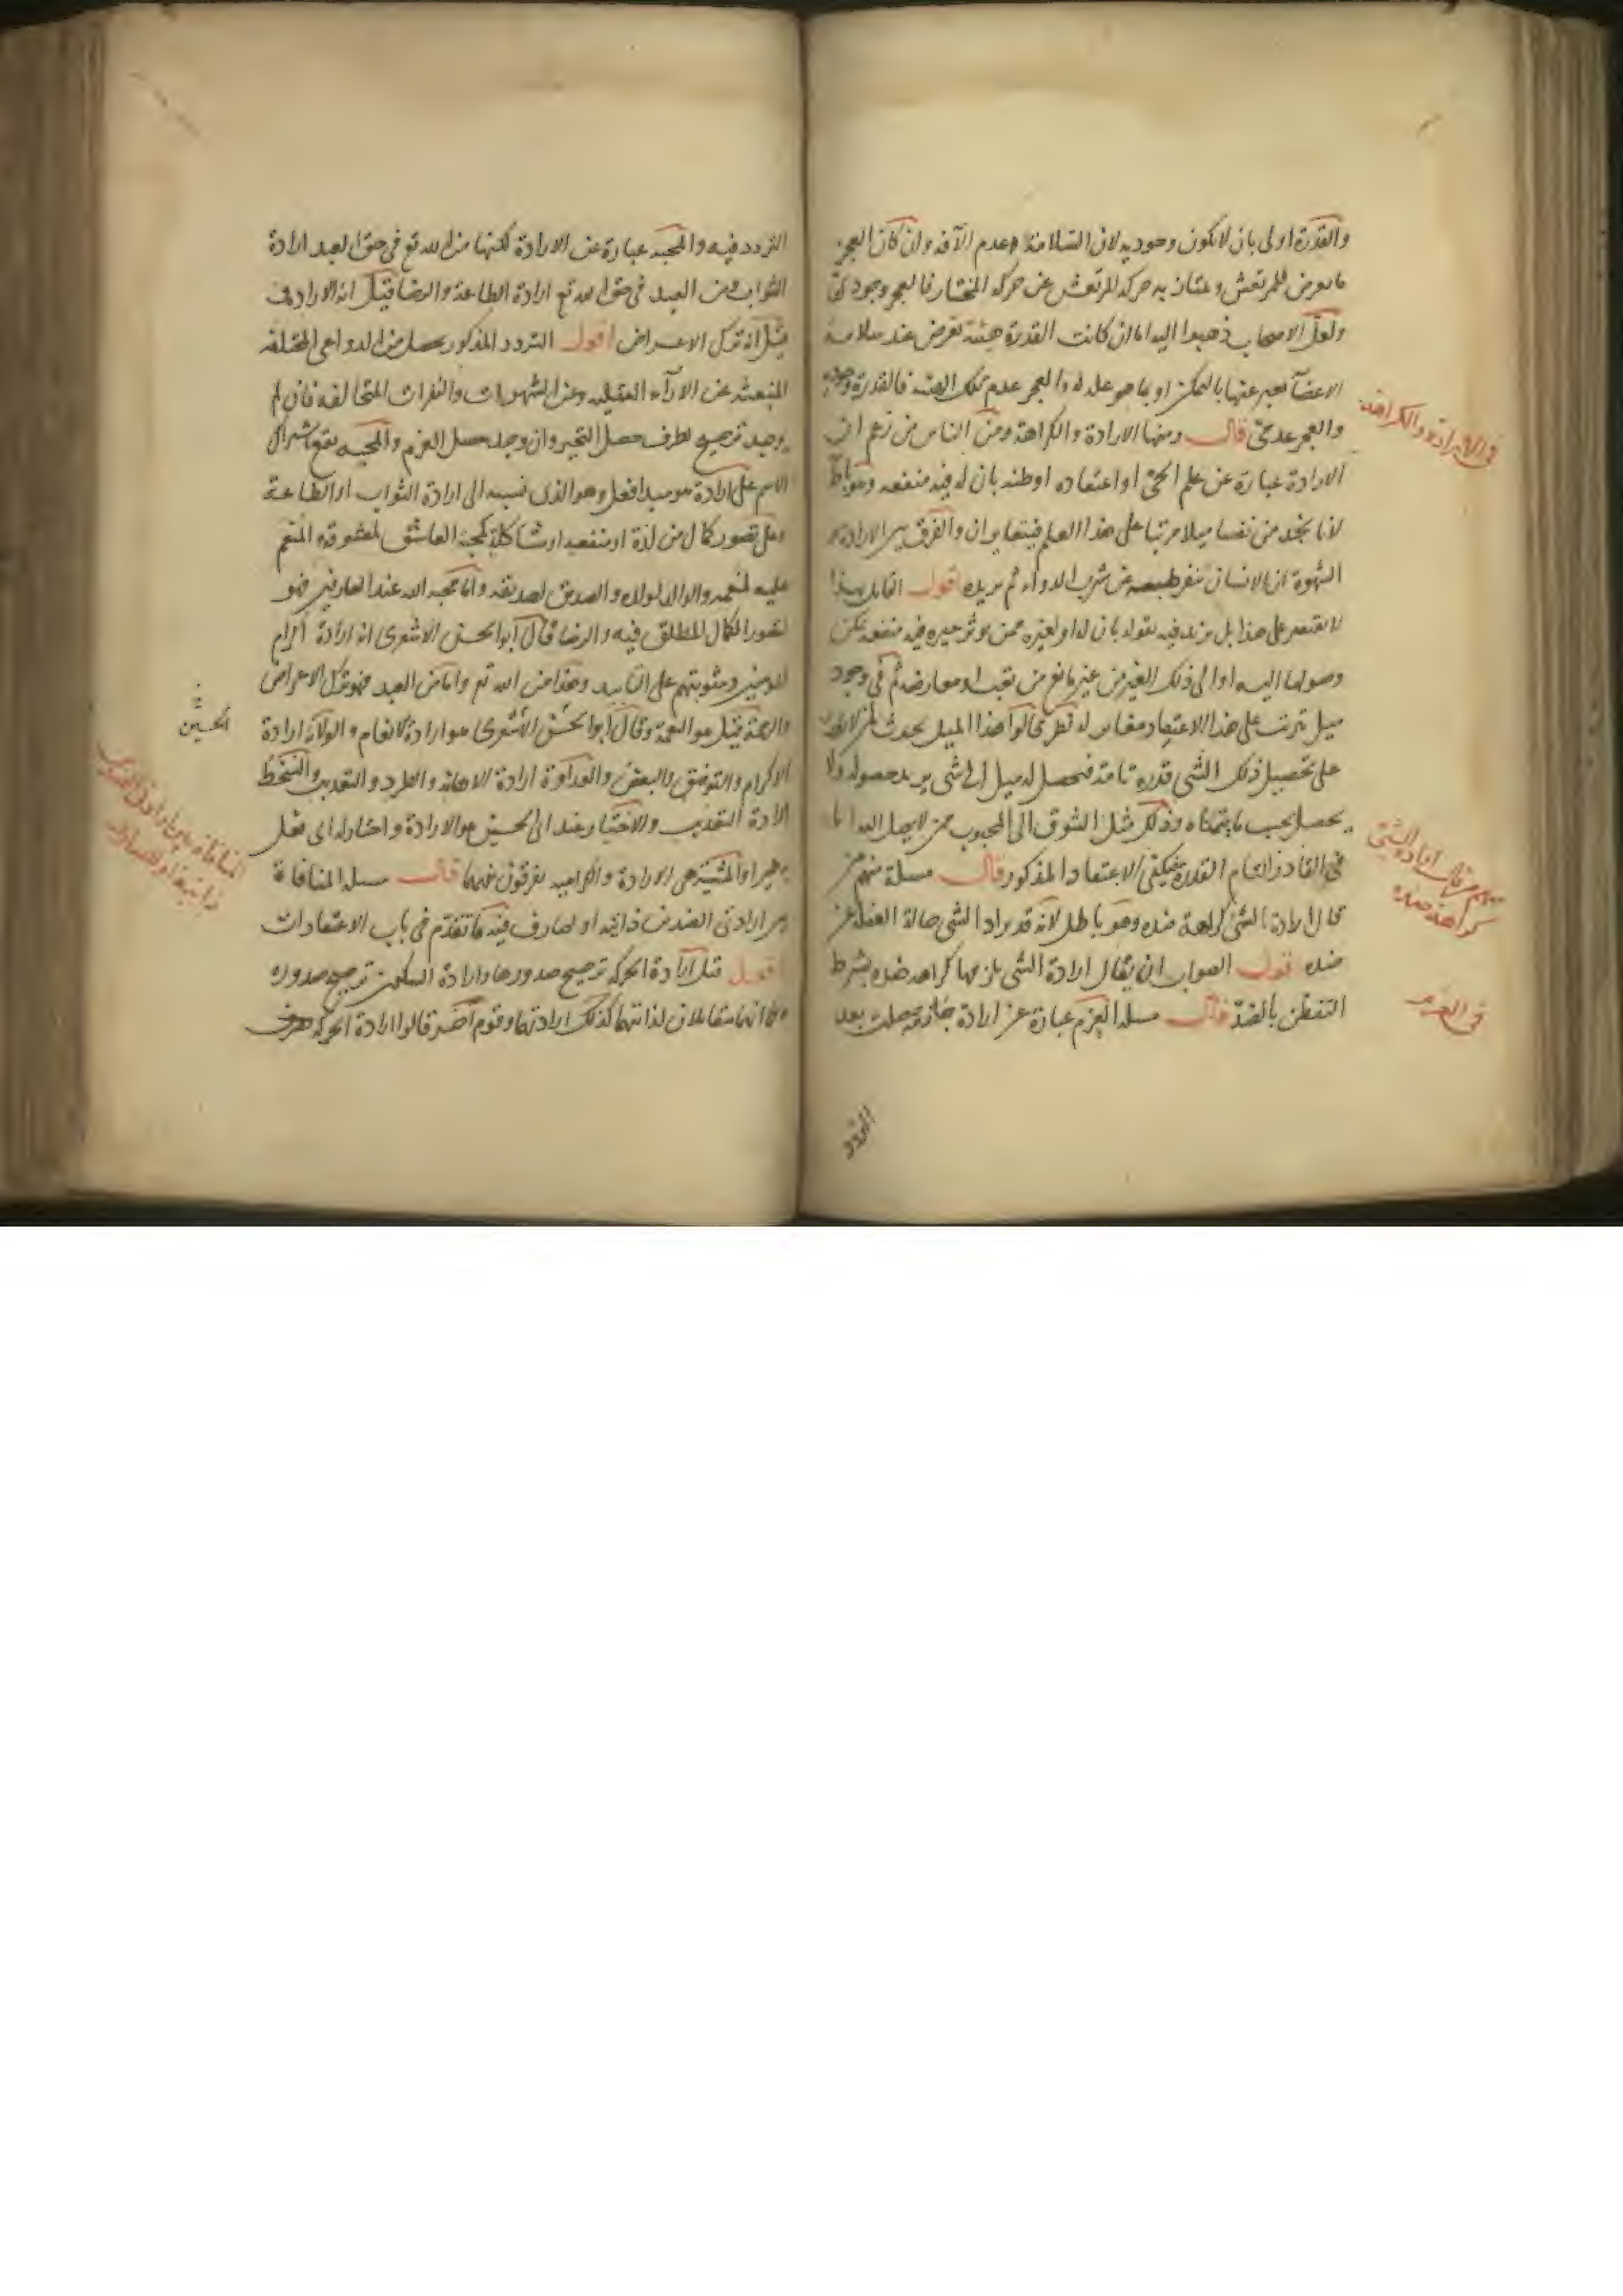 والقدرة اولى بان لا تكون وجوديه لان السلامة عدم الآفه وان كان العجز
ما يعرض للمرتعش ويمتاز به حركه المرتعش عن حركه المختار فالعجز وجودى
ولعل الاصحاب ذهبوا اليه اما ان كانت القدرة هيئة تعرض عند سلامة
الاعضآ يعبر عنها بالتمكن او بما هو علة له والعجز عدم تلك الهيئة فالقدرة وجودية
والعجز عدمى قال ومنها الارادة والكراهة ومن الناس من زعم ان
الارادة عبارة عن علم الحى او اعتقاده او ظنه بان له فيه منفعه وهو باطل
لانا نجد من نفسنا ميلا مرتبا على هذا العلم فيتغايران والفرق بين الارادة و
الشهوة ان الانسان ينفر طبعه عن شرب الدواء ثم يريده اقول القايل بهذا
لا يقتصر على هذا بل يزيد فيه بقوله بان له او لغيره ممن يوثر خيره فيه منفعه يمكن
وصولها اليه او الى ذلك الغير من غير مانع من تعب او معارضة ثم فى وجود
ميل يترتب على هذا الاعتقاد مغاير له نظر قالوا هذا الميل يحدث لمن لا يقدر
على تحصيل ذلك الشى قدرة تامة فيحصل له ميل الى شى يريد حصوله ولا
يحصل بحسب ما يتمناه وذلك مثل الشوق الى المحبوب ممن لا يصل اليه اما
فى القادر التام القدرة فيكفى الاعتقاد المذكور قال مسلة منهم من
قال ارادة الشى كراهة ضده وهو باطل لانه قد يراد الشى حالة الغفلة عن
ضده اقول الصواب ان يقال ارادة الشى يلزمها كراهه ضده بشرط
التفطن بالضد قال مسله العزم عبارة عن ارادة جازمة حصلت بعد
التردد
فى الارادة والكراهة
منهم من قال ارادة الشى
كراهة ضده
فى العزم
التردد فيه والمحبه عبارة عن الارادة لكنها من الله تع فى حق العبد ارادة
الثواب ومن العبد فى حق الله تع ارادة الطاعة والرضا قيل انه الارادة و
قيل انه ترك الاعراض اقول التردد المذكور يحصل من الدواعى المختلفة
المنبعثه عن الارآء العقليه وعن الشهوات والنفرات المتخالفه فان لم
يوجد ترجيح لطرف حصل التحير وان وجد حصل العزم والمحبه يقع باشتراك
الاسم على ارادة هو مبدا فعل وهو الذى نسبه الى ارادة الثواب او الطاعة
وعلى تصور كمال من لذة او منفعه او مشاكلة كمحبة العاشق لمعشوقه المنعم
عليه لمنعمه والوالد لولده والصديق لصديقه واما محبه الله عند العارفين فهو
تصور الكمال المطلق فيه والرضا قال ابو الحسن الاشعرى انه ارادة اكرام
المومنين ومثوبتهم على التابيد وهذا من الله تع واما من العبد فهو ترك الاعراض
والرحمة قيل هو النعمة وقال ابو الحسن الاشعرى هو ارادة الانعام والولاية ارادة
الاكرام والتوفيق والبغض والعداوة ارادة الاهانة والطرد والتعذيب والسخط
ارادة التعذيب والاختيار عند ابى الحسين هو الارادة واختار له اى فعل
به خيرا والمشيئة هى الارادة والكراميه يفرقون بينهما قال مسله المنافاة
بين ارادتى الضدين ذاتية او لصارف فيه ما تقدم فى باب الاعتقادات
اقول قيل ارادة الحركه ترجيح صدورها وارادة السكون ترجيح صدوره
وكما انهما متقابلان لذاتيهما كذلك ارادتهما وقوم آخر قالوا ارادة الحركه صرف
الحسين
المنافاة بين ارادتى الضدين
ذاتية او لصارف